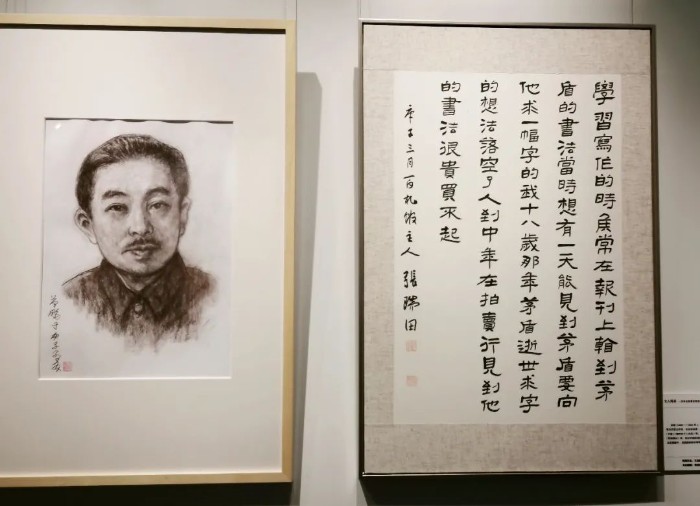 學習寫作的時候常在報刊上看到茅
盾的書法當時想有一天能見到茅盾要向
他求一幅字的我十八歲那年茅盾逝世求字
的想法落空了人到中年在拍賣行見到他
的書法很貴買不起
庚子三月百札館主人張瑞田